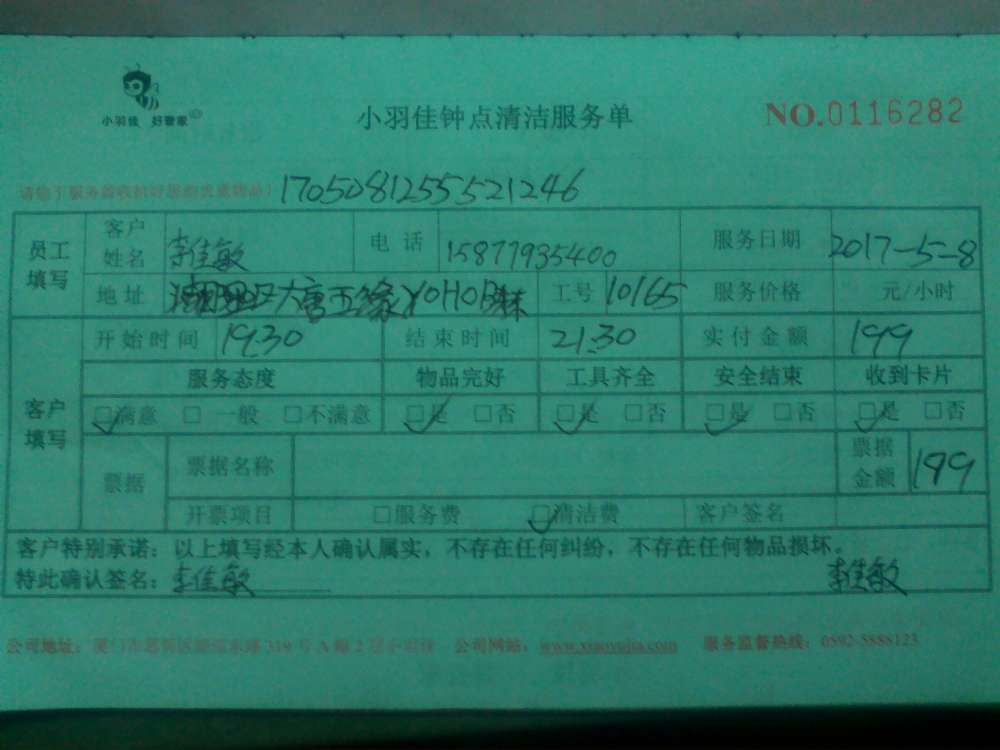 小羽佳 好管家
小羽佳钟点清洁服务单
NO.0116282
1705081255521246
员工填写
客户姓名 李佳敏 电话 15877935400 服务日期 2017-5-8
地址 大唐五缘YOHO 工号 10165 服务价格 元/小时
客户填写
开始时间 19:30 结束时间 21:30 实付金额 199
服务态度 物品完好 工具齐全 安全结束 收到卡片
□满意 □一般 □不满意 □是 □否 □是 □否 □是 □否 □是 □否
票据 票据名称 票据金额 199
开票项目 □服务费 □清洁费 客户签名
客户特别承诺：以上填写经本人确认属实，不存在任何纠纷，不存在任何物品损坏。
特此确认签名：李佳敏 李佳敏
公司地址：厦门市思明区 319号A幢2 小羽佳 公司网站：www.xiaoyujia.com 服务监督热线：0592-5888123